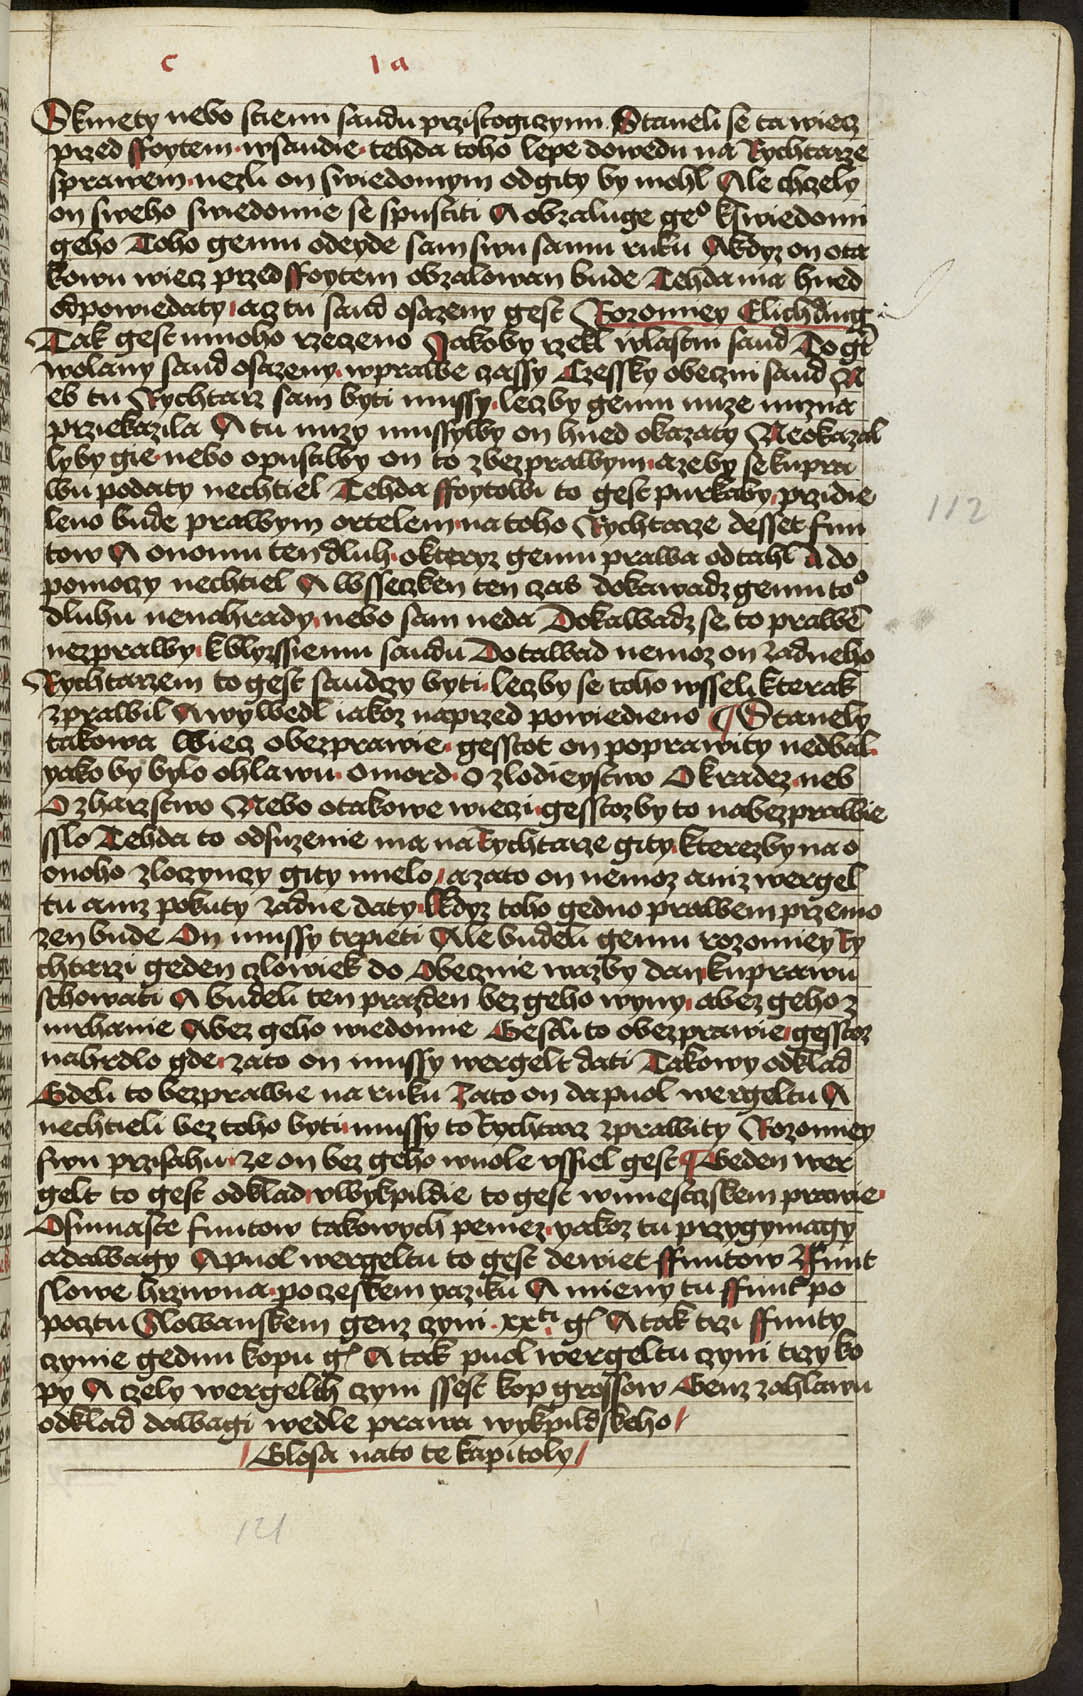 c l a
Skmety nebo sciemi saudu przistogiczymi Staneli se ta wiecz
przed ffoytem wsaudie tehda toho lepe dowedu na Rychtarze
sprawem nezli on swiedomym odgity by mohl Ale chzely
on sweho swiedomie se spustiti A obzaluge geº kswiedomi
geho Toho gemu odeyde sam swu samu ruku Akdyz on ota
kowu wiecz przed ffoytem obzalowan bude Tehda ma hned
odpowiedaty acz tu saud osazeny gest Rozomiey Elichding
Tak gest mnoho rzeczeno Jakoby rzekl wlastni saud To gt
wolany saud osazeny wprawe czassy Czessky obeczni saud N
eb tu Rychtarz sam byti mussy leczby gemu nuze nuzna
przekazila A tu nuzy mussylby on hned okazaty Neokazal
lyby gie nebo opustilby on to zbezprawym azeby sekupra
wu podaty nechtiel Tehda ffoytowi to gest purkaby przidie
leno bude prawym ortelem na toho Rychtarze desset fun
tow A onomu ten dluh okteryz gemu prawa odtahl a do
pomoczy nechtiel A wsseczken ten czas dokawadz gemu toº
dluhu nenahrady nebo sam neda Dokawadz se to prawē
nezprawy kblyzssiemu saudu Dotawad nemoz on zadneho
Rychtarzem to gest saudczy byti leczby se toho wsseli kterak
zprawil A wywedl iakoz naprzed powiedieno Stanely
takowa Wiecz obezprawie gesstot on poprawity nedbal
yako by bylo ohlawu omord o zlodieystwo Okradez neb
O zharzstwo Nebo otakowe wieczi gesstozby to nabezprawie
sslo Tehda to odsuzenie ma na Rychtarze gity kterezby na o
onoho zloczynczy gity mielo azato on nemoz aniz wergel
tu aniz pokuty zadne daty kdyz toho gedno prawem przemo
zen bude On mussy trpieti Ale budeli gemu rozomiey Ry
chtarzi geden czlowiek do Obecznie wazby dan kuprawu
schowati A budeli ten prazden bez geho wyny abez geho z
mrhanie Abez geho wiedomie Gestli to obezprawie gesstoz
nahrdlo gde zato on mussy wergelt dati Takowy odklad
Gdeli to bezprawie na ruku Tato on da puol wergeltu A
nechtieli bez toho byti mussy to Rychtarz zprawity Rozomiey
swu przisahu ze on bez geho wuole ussiel gest Geden wer
gelt to gest odklad uwykpildie to gest wmiestczskem prawie
Osmnaste funtow takowych peniez yakoz tu przygymagy
adawagy Apuol wergeltu to gest dewiet ffuntow Zffunt
slowe hrziwna poczeskem yaziku A mieny tu ffunt po
pocztu Slowanskem genz czyni xxti gr A tak trzi ffunty
czynie gednu kopu gr A tak puol wergeltu czyni trzy ko
py A czely wergelth czyni ssest kop grossow Genz zahlawu
odklad dawagi wedle prawa wykpildskeho
Glosa nato te kapitoly
112
121